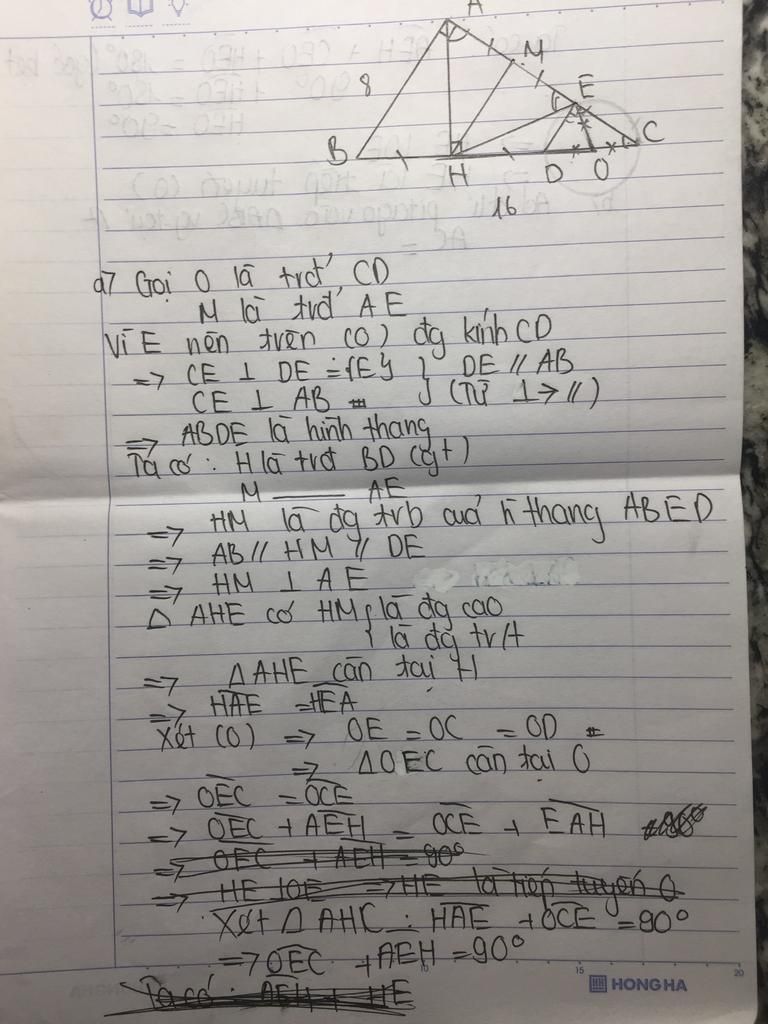 A
M
8
E
C
B
H
D
O
16
a, Gọi O là trđ' CD
M là trđ' AE
Vì E nên trên (O) đg kính CD
=> CE ⊥ DE = {E} } DE // AB
CE ⊥ AB } (Từ ⊥ → //)
=> ABDE là hình thang
Ta có : H là trđ' BD (gt)
M ——— AE
=> HM là đg trb của h thang ABED
=> AB // HM // DE
=> HM ⊥ AE
Δ AHE có HM { là đg cao
là đg tr/t
=> Δ AHE cân tại H
=> HAE = HEA
Xét (O) => OE = OC = OD =
=> Δ OEC cân tại O
=> OEC = OCE
=> OEC + AEH = OCE + EAH
=> OEC + AEH = 90°
=> HE ⊥ OE => HE là tiếp tuyến O
Xét Δ AHC : HAE + OCE = 90°
=> OEC + AEH = 90°
Ta có : AEH + HE
10 15 20
HONG HA